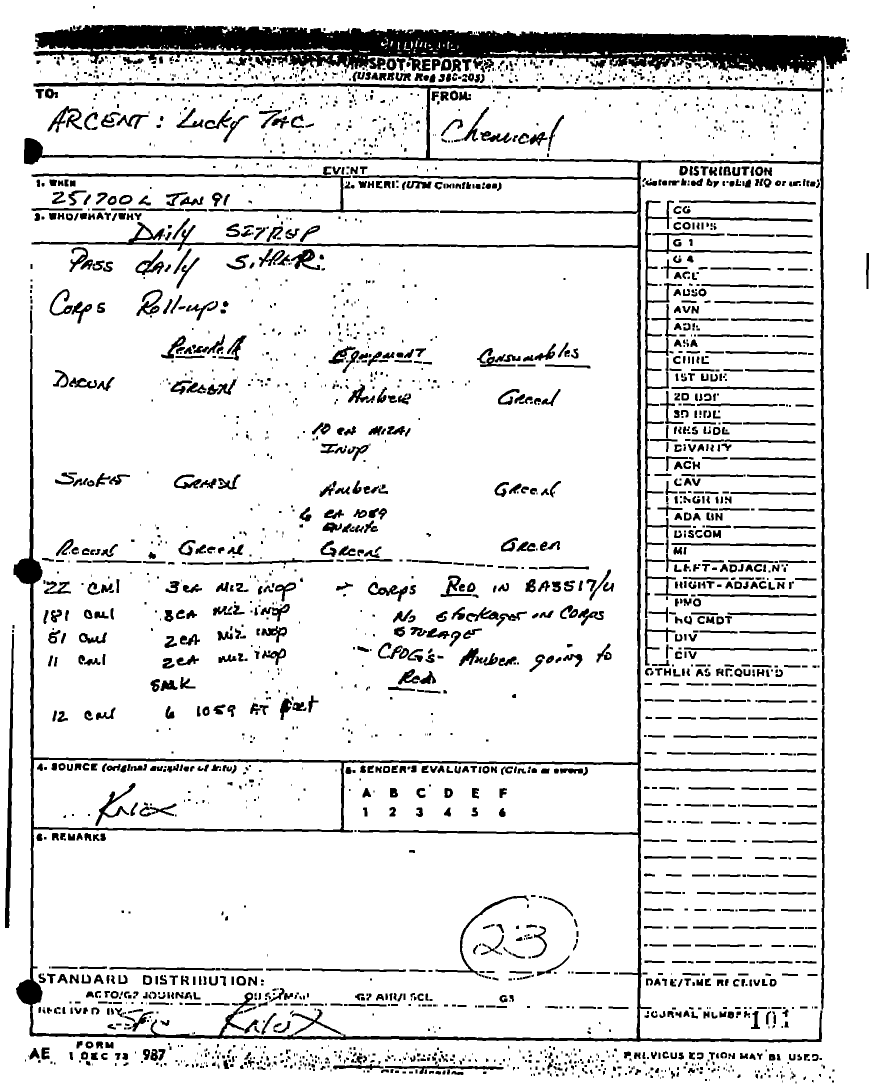 SPOT REPORT
(USAREUR Reg 380-205)
TO:
ARCENT: Lucky TAC
FROM:
Chemical
EVENT
1. WHEN
251700 L JAN 91
2. WHERE: (UTM Coordinates)
3. WHO/WHAT/WHY
Daily SITREP
Pass daily SITREP:
Corps Roll-up:
Equipment Consumables
Decon Green Amber Green
10 ea M12A1
Inop
Smoke Green Amber Green
6 ea 1059
enroute
Recon Green Green Green
22 Cml 3 ea M12 inop - Corps Red in BA3517/U
181 Cml 3 ea M12 inop No stockages in Corps
51 Cml 2 ea M12 inop storage
11 Cml 2 ea M12 inop - CPOG's - Amber going to
SMK Red
12 Cml 6 1059 at port
4. SOURCE (original supplier of info)
Knox
5. SENDER'S EVALUATION (Circle as owers)
A B C D E F
1 2 3 4 5 6
6. REMARKS
23
DISTRIBUTION
(determined by using HQ or units)
CG
CORPS
G 1
G 4
ACL
ADSO
AVN
ADE
ASA
CHRE
1ST BDE
2D BDE
3D BDE
RES BDE
DIVARTY
ACR
CAV
ENGR BN
ADA BN
DISCOM
MI
LEFT-ADJACENT
RIGHT-ADJACENT
PMO
HQ CMDT
DIV
CIV
OTHER AS REQUIRED
STANDARD DISTRIBUTION:
ACTO/G2 JOURNAL G2 SITMAP G2 AIR/ISCL G3
RECEIVED BY
Knox
DATE/TIME RECEIVED
JOURNAL NUMBER 101
AE FORM 1 DEC 73 987
PREVIOUS EDITION MAY BE USED.